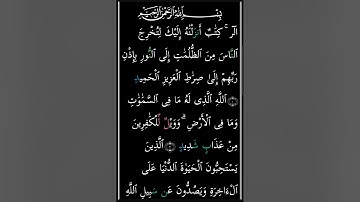 بِسْمِ ٱللَّهِ ٱلرَّحْمَٰنِ ٱلرَّحِيمِ
الٓر ۚ كِتَٰبٌ أَنزَلْنَٰهُ إِلَيْكَ لِتُخْرِجَ
ٱلنَّاسَ مِنَ ٱلظُّلُمَٰتِ إِلَى ٱلنُّورِ بِإِذْنِ
رَبِّهِمْ إِلَىٰ صِرَٰطِ ٱلْعَزِيزِ ٱلْحَمِيدِ
ٱللَّهِ ٱلَّذِى لَهُۥ مَا فِى ٱلسَّمَٰوَٰتِ
وَمَا فِى ٱلْأَرْضِ ۗ وَوَيْلٌ لِّلْكَٰفِرِينَ
مِنْ عَذَابٍ شَدِيدٍ ٱلَّذِينَ
يَسْتَحِبُّونَ ٱلْحَيَوٰةَ ٱلدُّنْيَا عَلَى
ٱلْءَاخِرَةِ وَيَصُدُّونَ عَن سَبِيلِ ٱللَّهِ